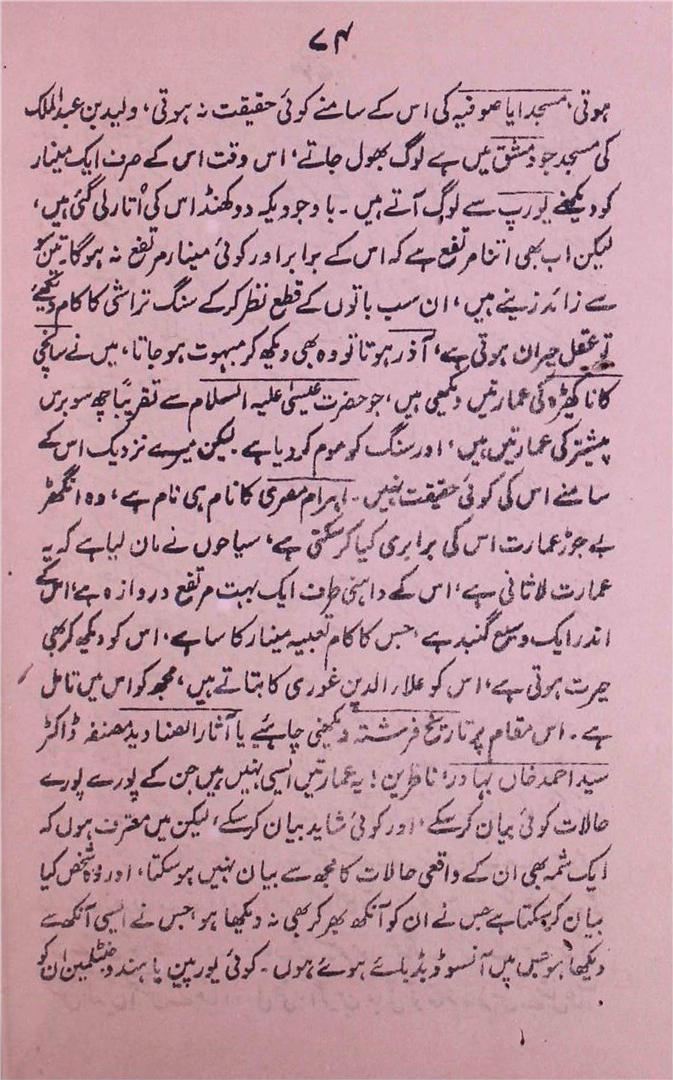 ۷۴
ہوتی، مسجد ایا صوفیہ کی اس کے سامنے کوئی حقیقت نہ ہوتی، ولید بن عبدالملک
کی مسجد جو دمشق میں ہے لوگ بھول جاتے، اس وقت اس کے صرف ایک مینار
کو دیکھنے یورپ سے لوگ آتے ہیں۔ باوجودیکہ دو کھنڈ اس کی اُتار لی گئی ہیں،
لیکن اب بھی اتنا مرتفع ہے کہ اس کے برابر اور کوئی مینار مرتفع نہ ہوگا۔ تین سو
سے زائد زینے ہیں، ان سب باتوں کے قطع نظر کر کے سنگ تراشی کا کام دیکھئے
تو عقل حیران ہوتی ہے، آذر ہوتا تو وہ بھی دیکھ کر مبہوت ہو جاتا، میں نے سانچی
کانا کھیڑہ کی عمارتیں دیکھی ہیں، جو حضرت عیسیٰ علیہ السلام سے تقریباً چھ سو برس
پیشتر کی عمارتیں ہیں، اور سنگ کو موم کر دیا ہے۔ لیکن میرے نزدیک اس کے
سامنے اس کی کوئی حقیقت نہیں۔ اہرام مصری کا نام ہی نام ہے، وہ انگھڑ
بے جوڑ عمارت اس کی برابری کیا کر سکتی ہے، سیاحوں نے مان لیا ہے کہ یہ
عمارت لاثانی ہے، اس کے داہنی طرف ایک بہت مرتفع دروازہ ہے، اس کے
اندر ایک وسیع گنبد ہے، جس کا کام تعبیہ مینار کا سا ہے، اس کو دیکھ کر بھی
حیرت ہوتی ہے، اس کو علاء الدین غوری کا بتاتے ہیں، مجھ کو اس میں تامل
ہے۔ اس مقام پر تاریخ فرشتہ دیکھنی چاہئے یا آثار الصنادید مصنفہ ڈاکٹر
سید احمد خاں بہادر، ناظرین! یہ عمارتیں ایسی نہیں ہیں جن کے پورے پورے
حالات کوئی بیان کر سکے، اور کوئی شاید بیان کر سکے، لیکن میں معترف ہوں کہ
ایک شمہ بھی ان کے واقعی حالات کا مجھ سے بیان نہیں ہو سکتا، اور وہ شخص کیا
بیان کر سکتا ہے جس نے ان کو آنکھ بھر کر بھی نہ دیکھا ہو، جس نے ایسی آنکھ سے
دیکھا ہو جس میں آنسو ڈبڈبائے ہوئے ہوں۔ کوئی یورپین یا ہندو جنٹلمین ان کو